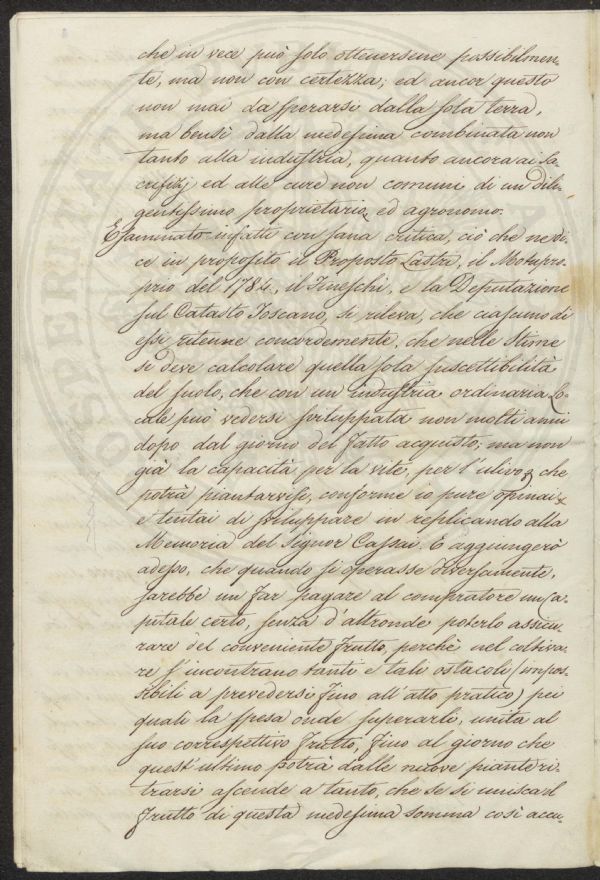 che in vece può solo ottenersene possibilmen-
te, ma non con certezza; ed ancor questo
non mai da sperarsi dalla sola terra,
ma bensì dalla medesima combinata non
tanto alla industria, quanto ancora ai Sa-
crifizj ed alle cure non comuni di un dili-
gentissimo proprietario, ed agronomo.
Esaminato infatti con sana critica, ciò che ne di-
ce in proposito il Proposto Lastri, il Motupro-
prio del 1784, il Fineschi, e la Deputazione
sul Catasto Toscano, si rileva, che ciascuno di
essi ritenne concordemente, che nelle Stime
si deve calcolare quella sola suscettibilità
del suolo, che con un industria ordinaria Lo-
cale può vedersi sviluppata non molti anni
dopo dal giorno del fatto acquisto; ma non
già la capacità per la vite, per l'ulivo, che
potrà piantarvisi, conforme io pure opinai,
e tentai di sviluppare in replicando alla
Memoria del Signor Cassai. E aggiungerò
adesso, che quando si operasse diversamente,
sarebbe un far pagare al compratore un Ca-
pitale certo, senza d'altronde poterlo assicu-
rare del conveniente frutto, perchè nel coltiva-
re s'incontrano tanti e tali ostacoli (impos-
sibili a prevedersi fino all'atto pratico) pei
quali la spesa onde superarli, unita al
suo correspettivo frutto, fino al giorno che
quest'ultimo potrà dalle nuove piante ri-
trarsi ascende a tanto, che se si unisca il
frutto di questa medesima somma così accu-
OSPEDALI